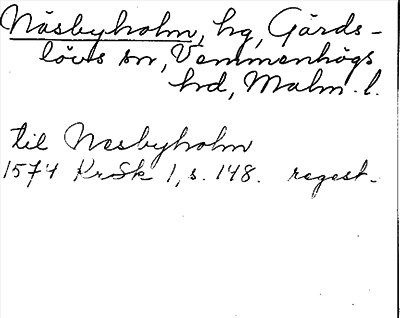 Näsbyholm, hg, Gärds-
lövs sn, Vemmenhögs
hd, Malm. l.
til Nesbyholm
1574 KrSk 1, s. 148. regest.